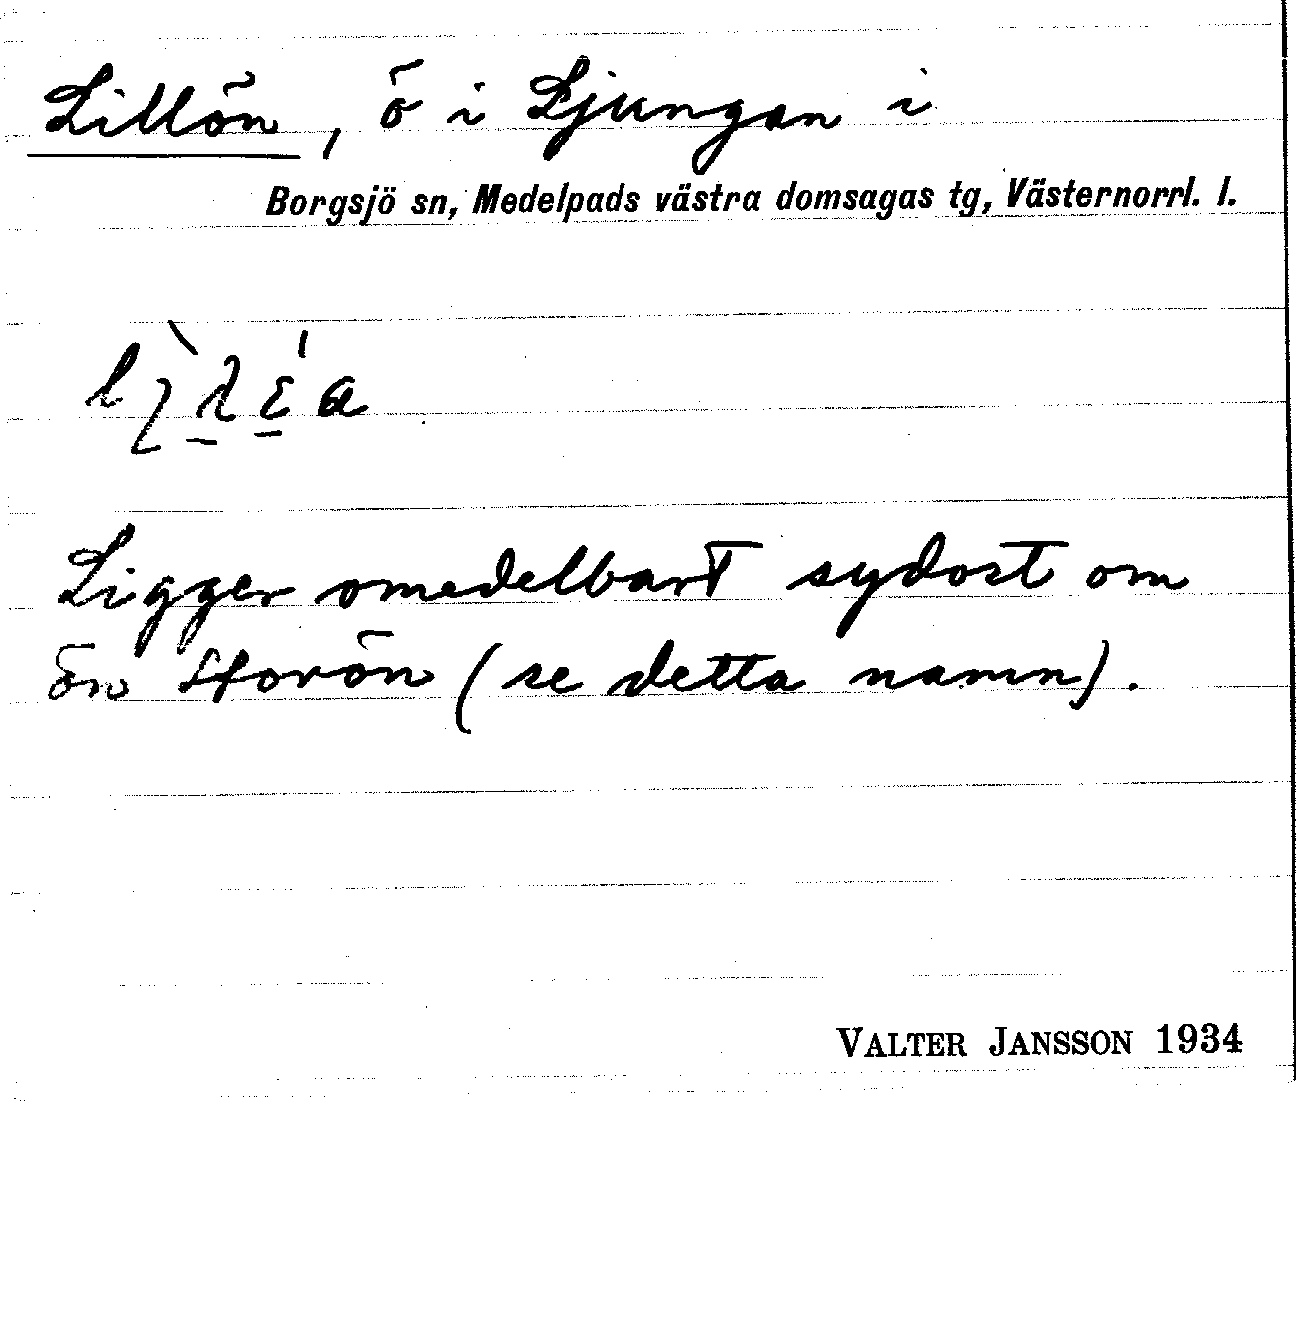 Lillön, ö i Ljungan i
Borgsjö sn, Medelpads västra domsagas tg, Västernorrl. l.
Ligger omedelbart sydost om
ön Storön (se detta namn).
VALTER JANSSON 1934